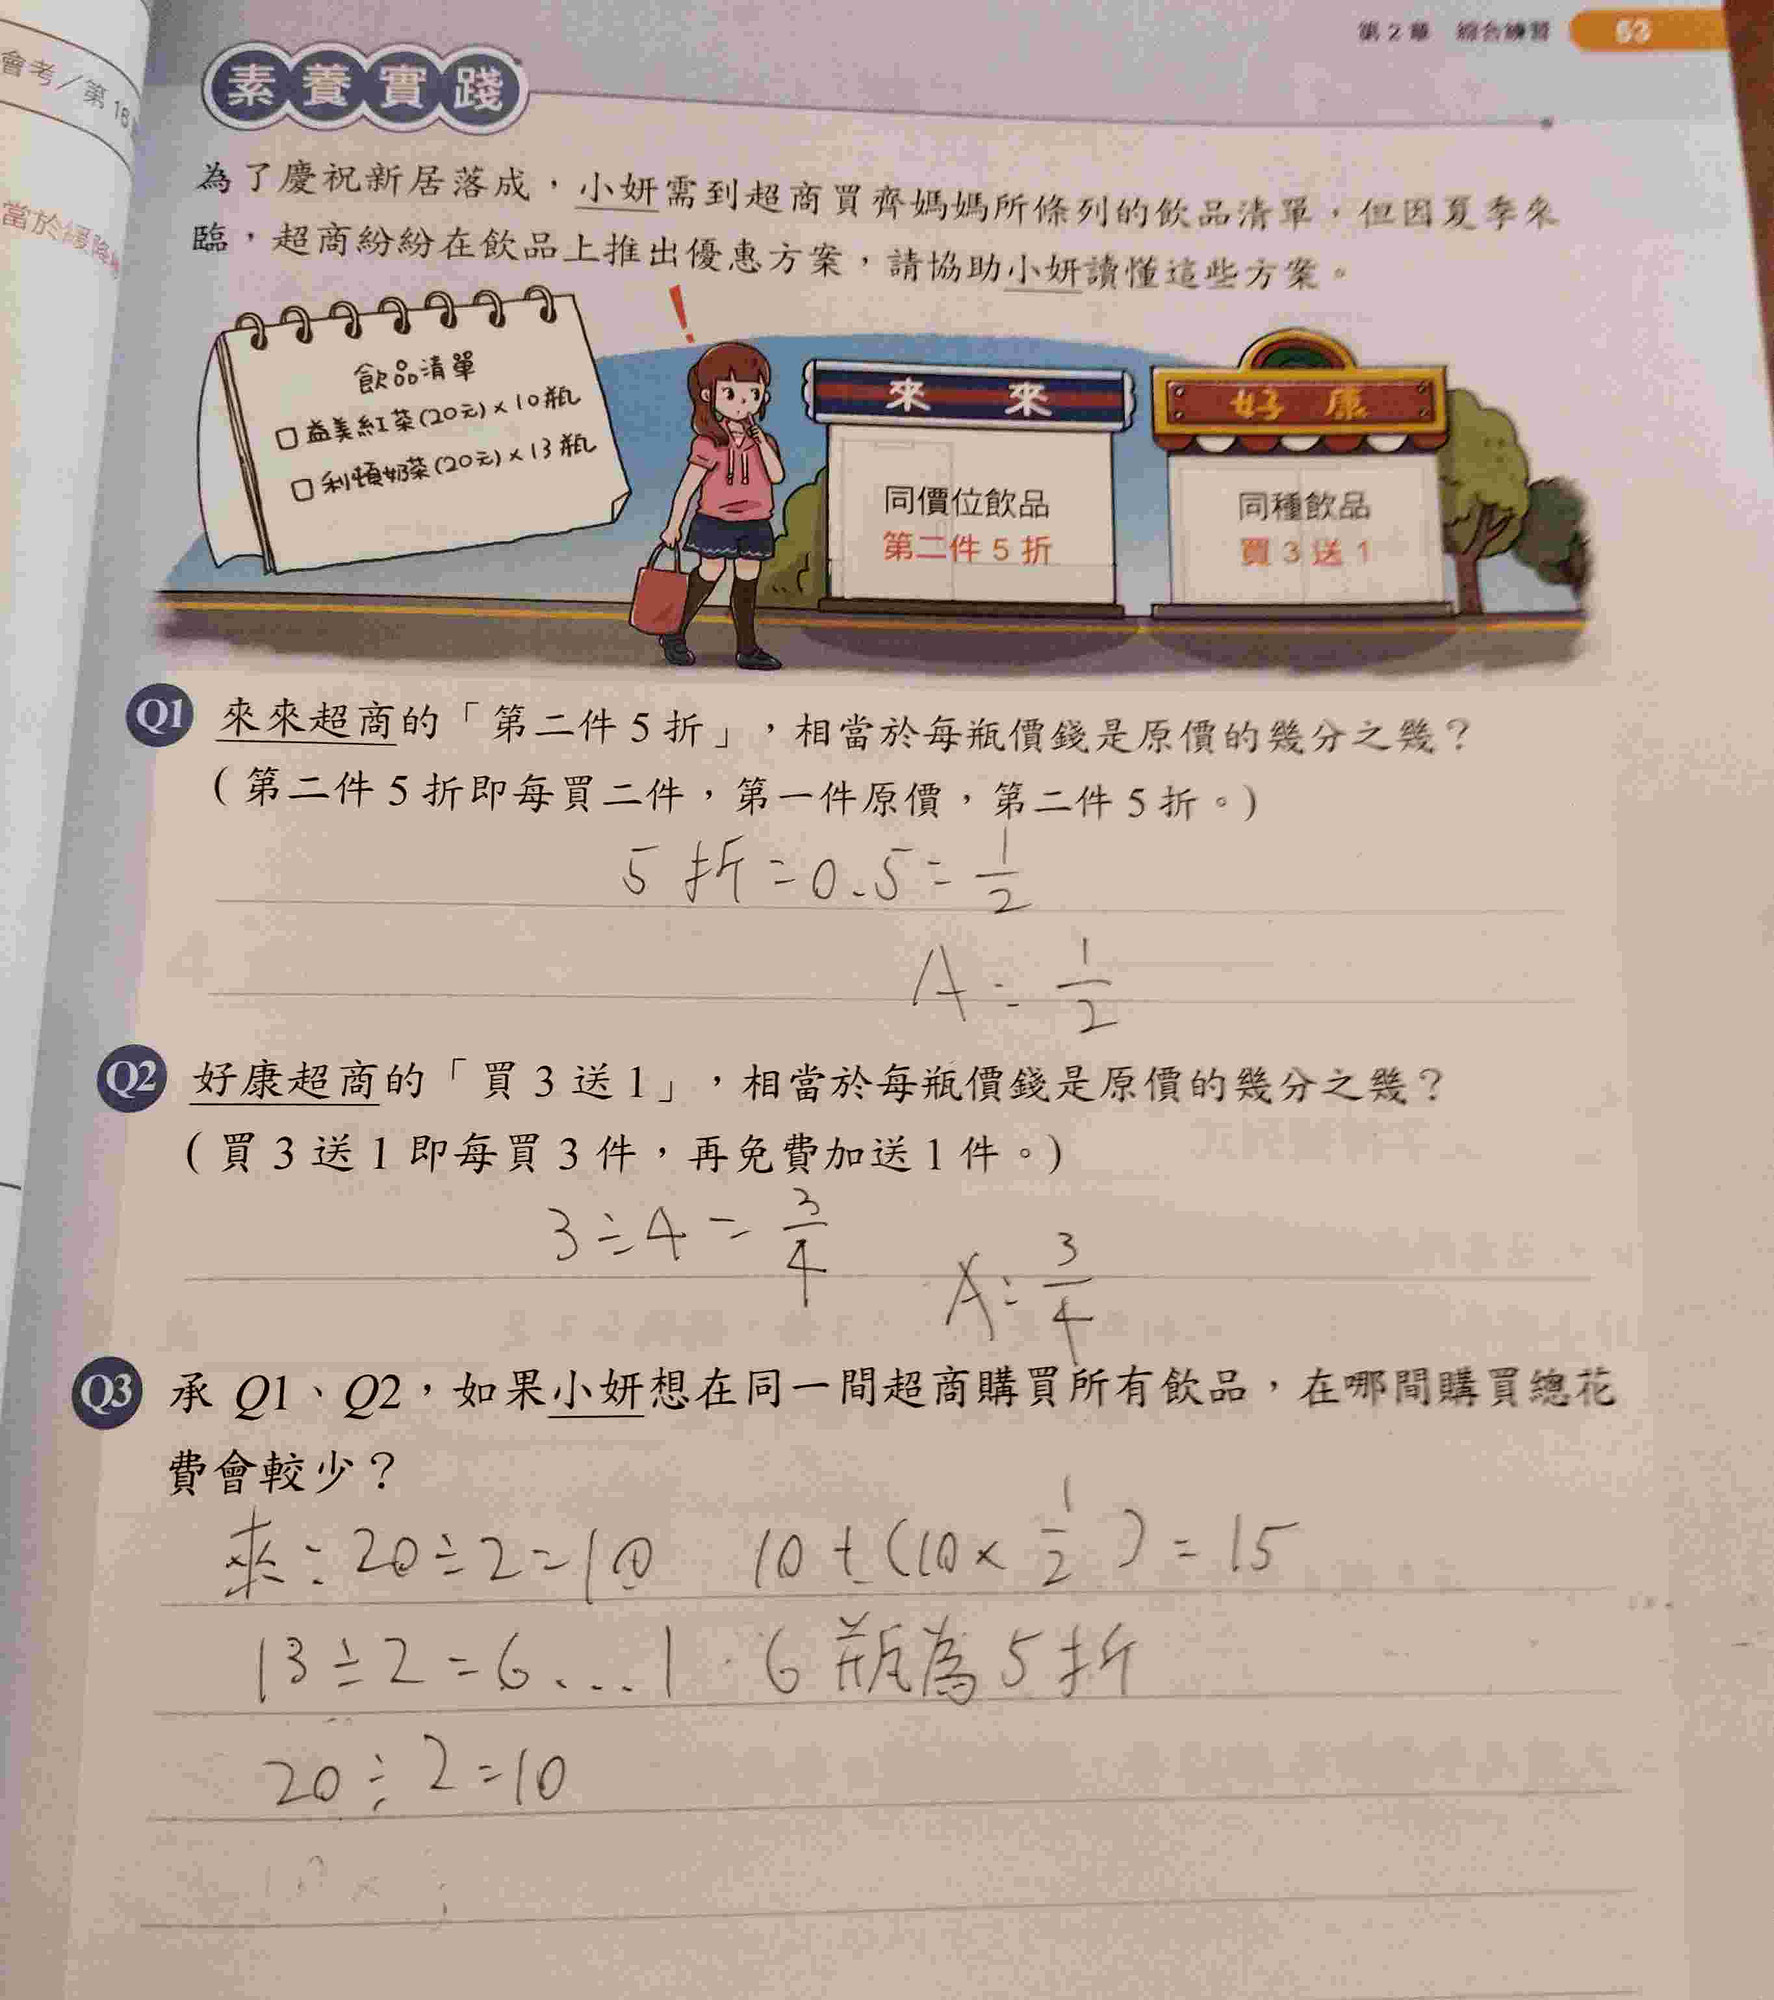 第2章 綜合練習 53
會考／第16
素養實踐
為了慶祝新居落成，小妍需到超商買齊媽媽所條列的飲品清單，但因夏季來
臨，超商紛紛在飲品上推出優惠方案，請協助小妍讀懂這些方案。
當於緩降
飲品清單
□益美紅茶(20元)×10瓶
□利頓奶茶(20元)×13瓶
!
來來
同價位飲品
第二件5折
好康
同種飲品
買3送1
Q1 來來超商的「第二件5折」，相當於每瓶價錢是原價的幾分之幾？
(第二件5折即每買二件，第一件原價，第二件5折。)
5折=0.5=1/2
A:1/2
Q2 好康超商的「買3送1」，相當於每瓶價錢是原價的幾分之幾？
(買3送1即每買3件，再免費加送1件。)
3÷4=3/4 A:3/4
Q3 承Q1、Q2，如果小妍想在同一間超商購買所有飲品，在哪間購買總花
費會較少？
來:20÷2=10 10+(10×1/2)=15
13÷2=6...1 6瓶為5折
20÷2=10